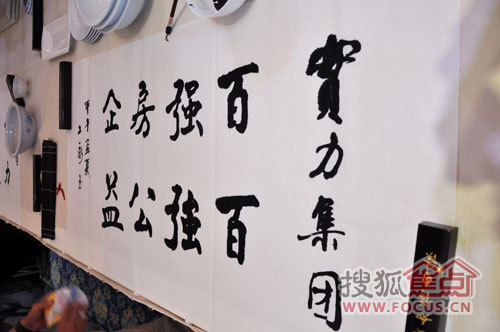 實力集团
百强房企
百强公益
甲午孟夏
搜狐焦点
WWW.FOCUS.CN